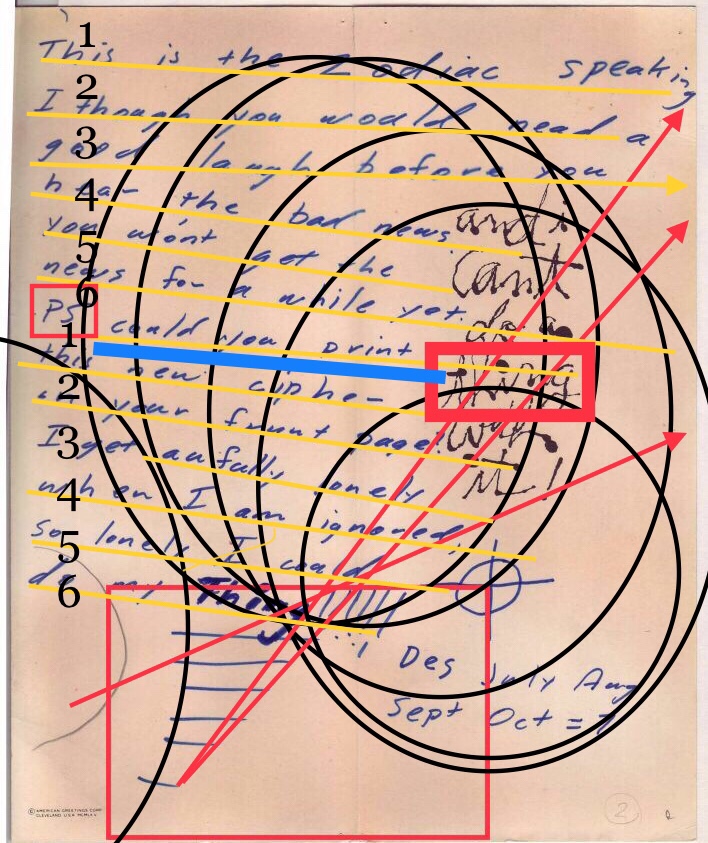 1
This is the Zodiac speaking
2
I though you would need a
3
good laugh before you
4
hear the bad news
you won't get the
5
news for a while yet.
6
PS could you print
1
this new cipher
2
in your frunt page?
3
I get aufully lonely
when I am ignored,
4
so lonely I could
5
do my Thing
6
!!!!!!
and i
cant
do a
thing
with
it!
Des July Aug
Sept Oct = 7
© AMERICAN GREETINGS CORP.
CLEVELAND, U.S.A.
2